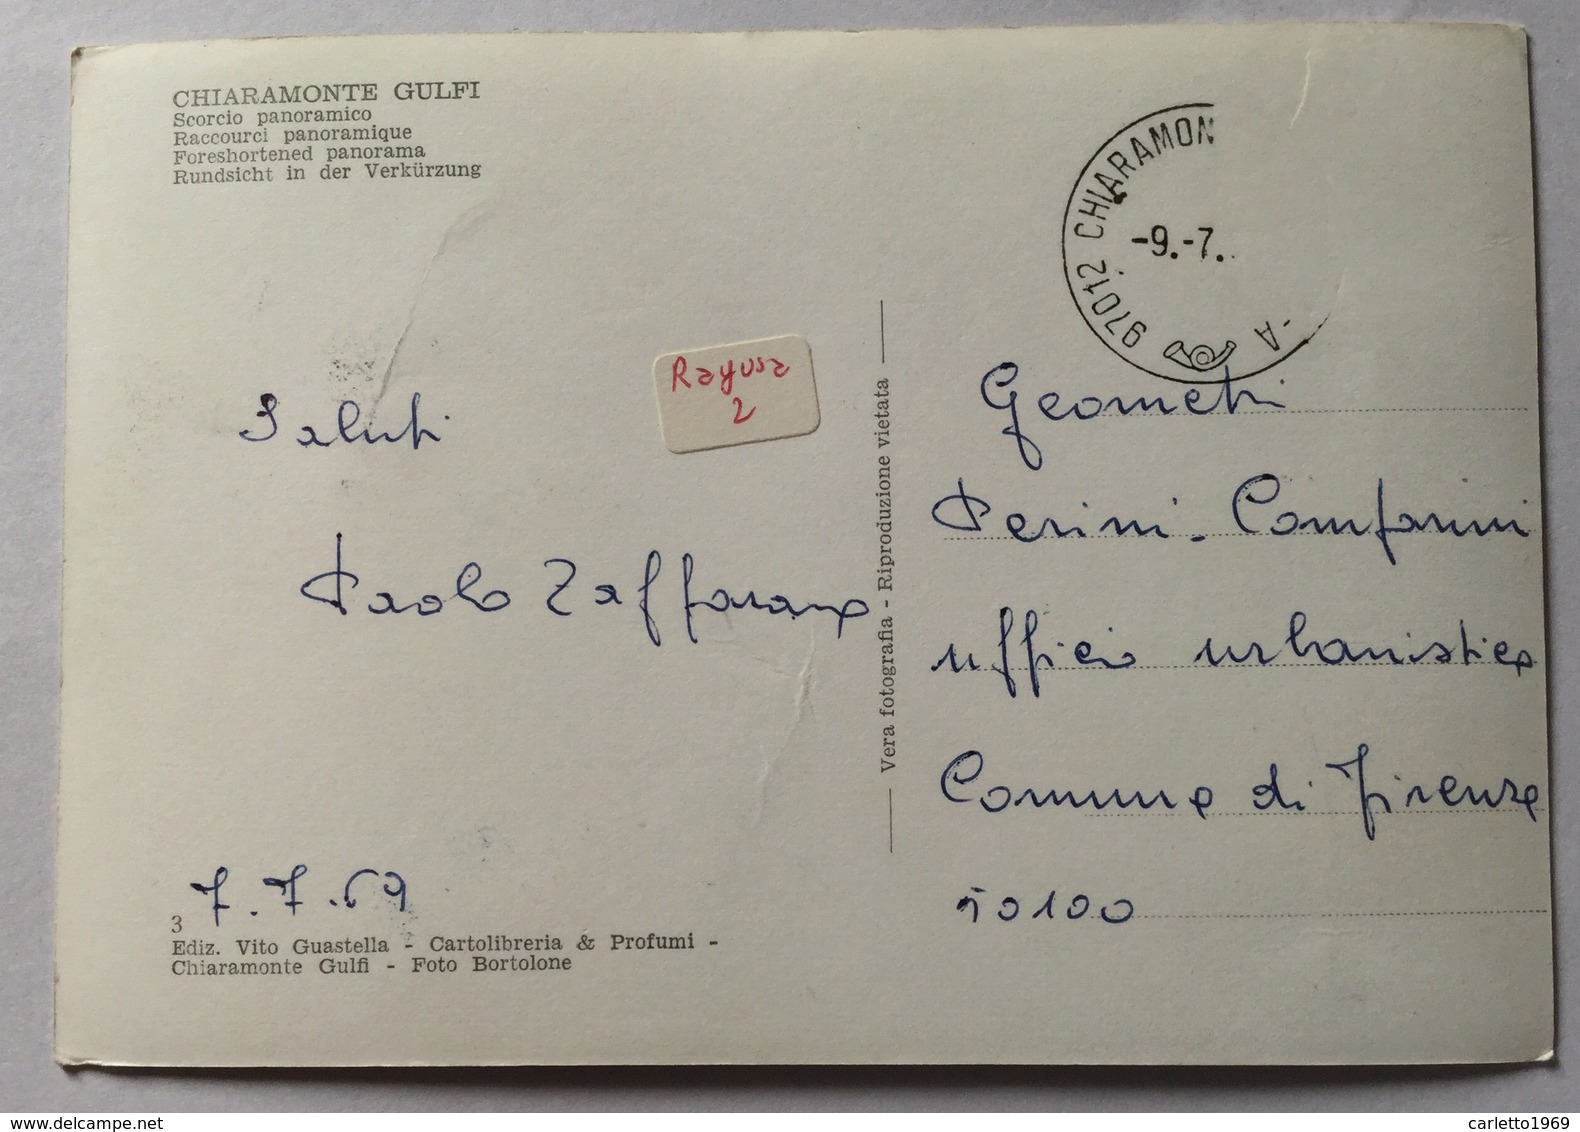 CHIARAMONTE GULFI
Scorcio panoramico
Raccourci panoramique
Foreshortened panorama
Rundsicht in der Verkürzung
97012 CHIARAMON
-9.-7.
- A
Ragusa
2
Saluti
Paolo Zaffarano
7.7.69
3
Ediz. Vito Guastella - Cartolibreria & Profumi -
Chiaramonte Gulfi - Foto Bortolone
Vera fotografia - Riproduzione vietata
Geometri
Perini - Comparini
ufficio urbanistico
Comune di Firenze
50100
www.delcampe.net
carletto1969